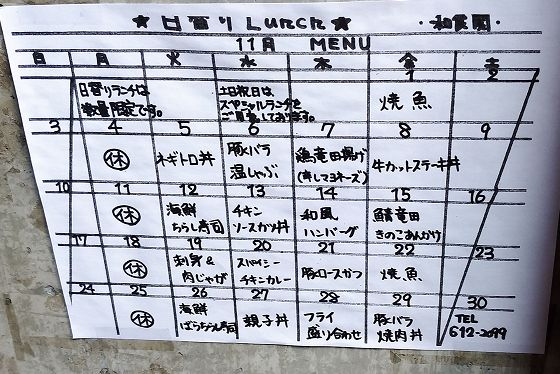 ★ 日替り Lunch ★ ・和食園・
11月 MENU
日 月 火 水 木 金 土
1 2
日替りランチは
数量限定です。
土日祝日は
スペシャルランチを
ご用意しております。
焼魚
3 4 5 6 7 8 9
休
ネギトロ丼
豚バラ
温しゃぶ
鶏竜田揚げ
牛カットステーキ丼
10 11 12 13 14 15 16
休
海鮮
ちらし寿司
チキン
ソースカツ丼
和風
ハンバーグ
鯖竜田
きのこあんかけ
17 18 19 20 21 22 23
休
刺身&
肉じゃが
スパイシー
チキンカレー
豚ロースかつ
焼魚
24 25 26 27 28 29 30
休
海鮮
ばらちらし寿司
親子丼
フライ
盛り合わせ
豚バラ
焼肉丼
TEL
612-2099